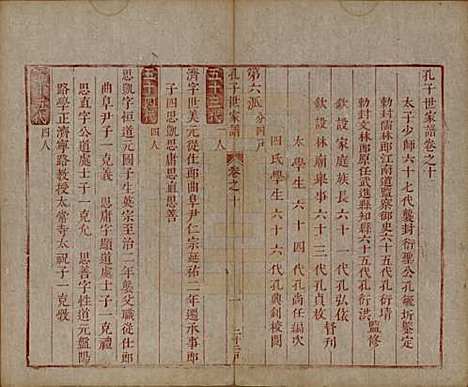 孔子世家譜卷之十
太子少師六十七代襲封衍聖公孔毓圻鑒定
勅封文林郎江南道監察御史六十五代孔衍
勅封文林郎原任武進縣知縣六十五代孔衍洪
監修
欽設家庭族長六十一代孔弘依
欽設林廟舉事六十三代孔貞枚
督刊
太學生六十四代孔尚任
四氏學生六十六代孔興釗
校閱
第六派 分四戶
五十三代 一人
孔子世家譜 卷之十 一 二十三戶
濟字世美元從仕郎曲阜尹仁宗延祐二年遷承事
郎子四思凱思庸思直思善
五十四代 四人
思凱字恒道元國子生英宗至治二年襲父職從仕郎
曲阜尹子一克允 思庸字顯道處士子一克
思直字公道處士子一克 思善字性道元
路學正濟寧路教授太常寺太祝子一克
五十五代 四人